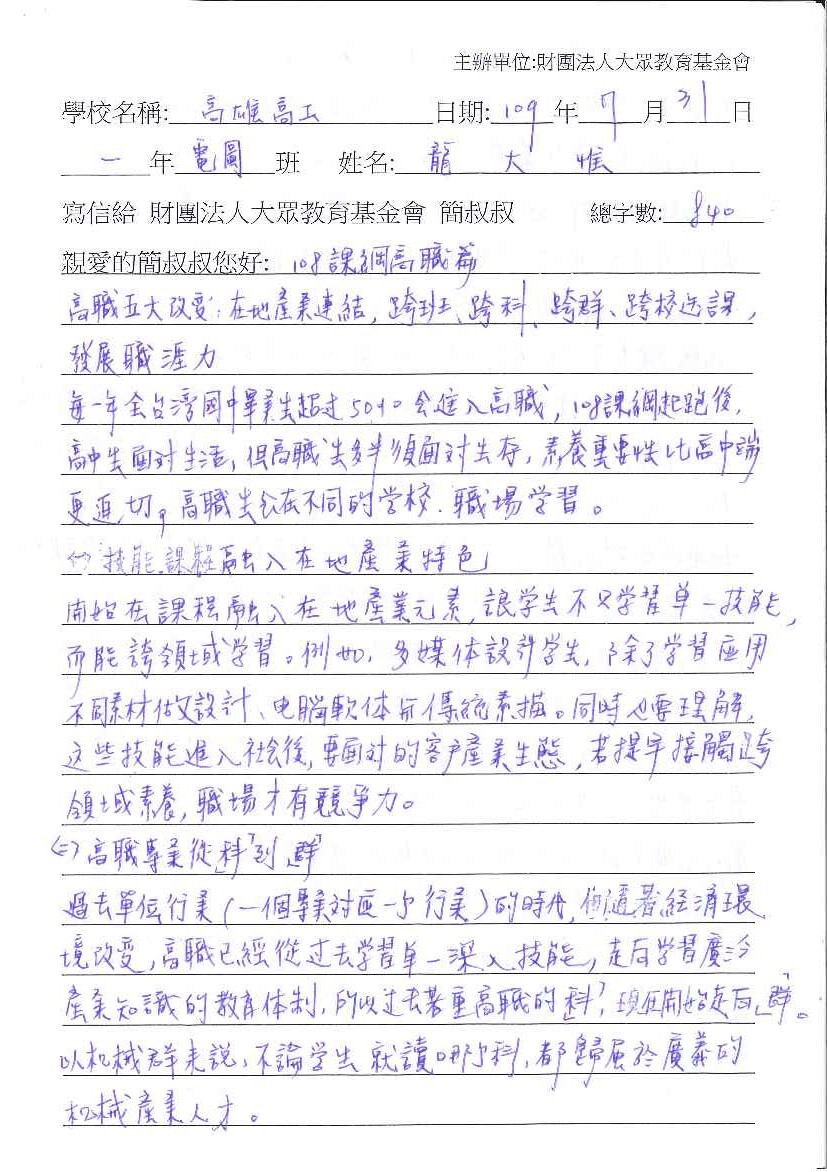 主辦單位:財團法人大眾教育基金會
學校名稱: 高雄高工 日期: 109 年 7 月 31 日
一 年 電圖 班 姓名: 龍 大 惟
寫信給 財團法人大眾教育基金會 簡叔叔 總字數: 840
親愛的簡叔叔您好: 108課綱高職篇
高職五大改變:在地產業連結,跨班、跨科、跨群、跨校选課,
發展職涯力
每一年全台湾國中畢業生超过50%会進入高職,108課綱起跑後,
高中生面对生活,但高職生多半須面对生存,素養重要性比高中端
更迫切。高職生会在不同的学校、職場学習。
(一)技能課程融入在地產業特色
開始在課程融入在地產業元素,讓学生不只学習单一技能,
而能跨領域学習。例如,多媒体設計学生,除了学習应用
不同素材做設計、电腦軟体与傳統素描。同時也要理解,
这些技能進入社会後,要面对的客户產業生態,若提早接觸跨
領域素養,職場才有競爭力。
(二)高職專業從「科」到「群」
過去單位行業(一個專業对应一个行業)的時代,但随著經済環
境改变,高職已經從过去学習单一深入技能,走向学習廣泛
產業知識的教育体制,所以过去著重高職的「科」,現在開始走向「群」。
以机械群来説,不論学生就讀哪个科,都歸属於廣義的
机械產業人才。